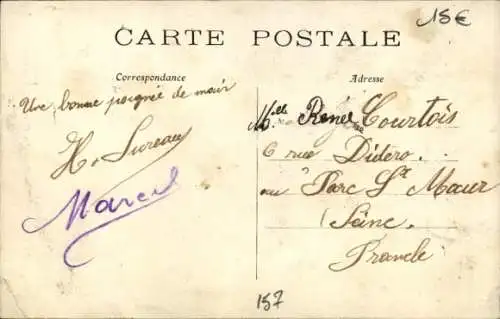 15€
CARTE POSTALE
Correspondance
Adresse
Une bonne poignée de main
H. Sureau
Marcel
Melle Renée Courtois
6 rue Didero.
au Parc St Maur
(Seine.
France
157